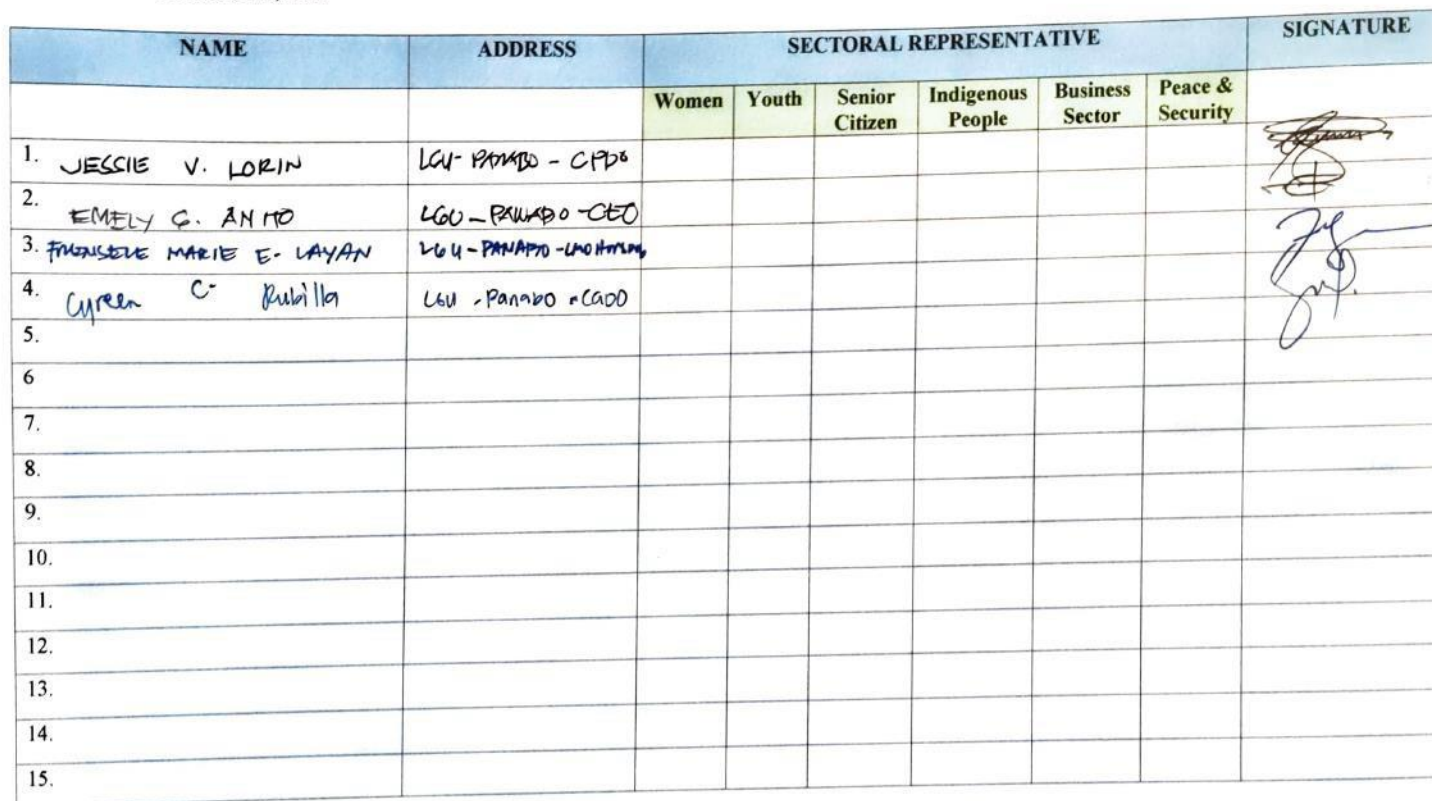 NAME ADDRESS SECTORAL REPRESENTATIVE SIGNATURE
Women Youth Senior Citizen Indigenous People Business Sector Peace & Security
1. JESSIE V. LORIN LGU-PANABO - CPDO
2. EMELY G. LGU-PANABO-CEO
3. MARIE E. LAYAN LGU-PANABO
4. Cyreen C. Rubilla LGU-Panabo
5.
6
7.
8.
9.
10.
11.
12.
13.
14.
15.